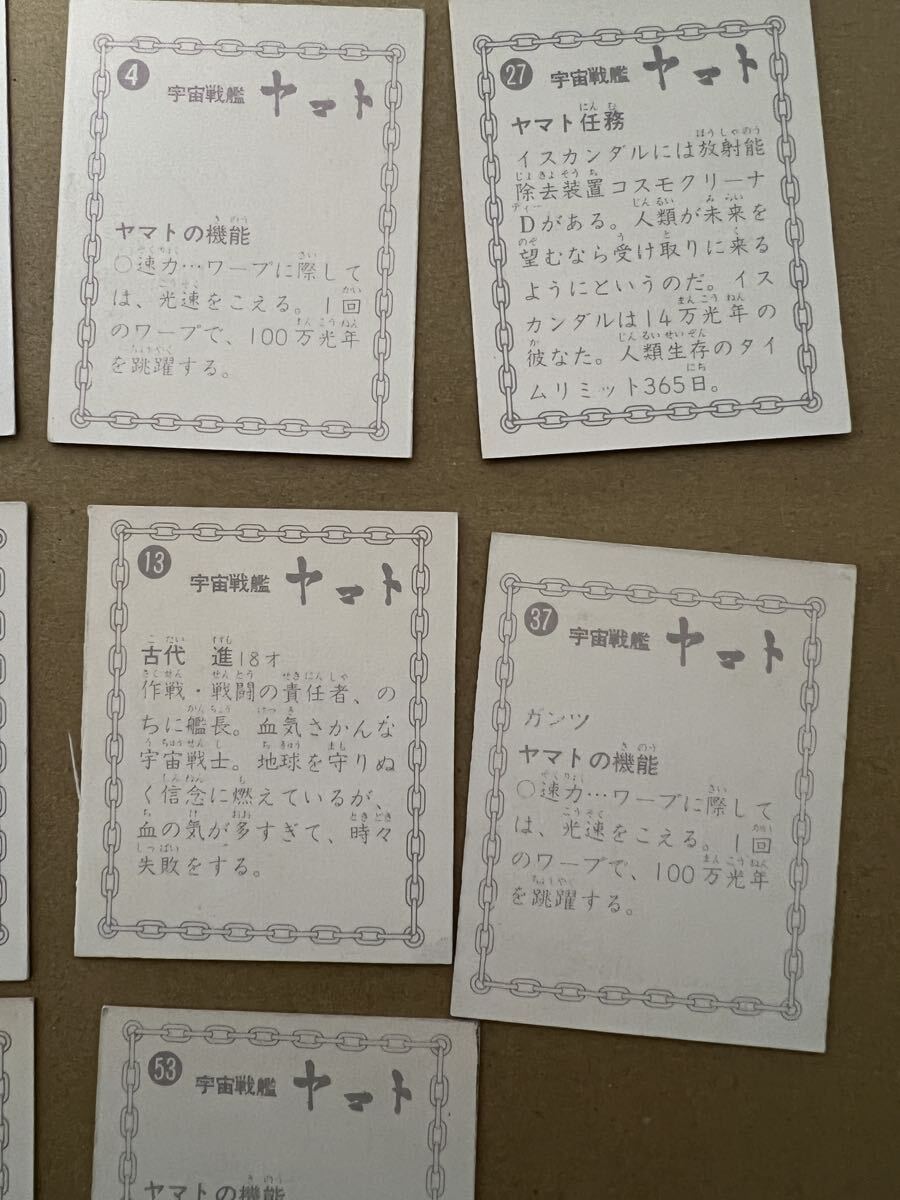 4
宇宙戦艦 ヤマト
ヤマトの機能
○速力…ワープに際して
は、光速をこえる。1回
のワープで、100万光年
を跳躍する。
27
宇宙戦艦 ヤマト
ヤマト任務
イスカンダルには放射能
除去装置コスモクリーナ
Dがある。人類が未来を
望むなら受け取りに来る
ようにというのだ。イス
カンダルは14万光年の
彼なた。人類生存のタイ
ムリミット365日。
13
宇宙戦艦 ヤマト
古代 進18才
作戦・戦闘の責任者、の
ちに艦長。血気さかんな
宇宙戦士。地球を守りぬ
く信念に燃えているが、
血の気が多すぎて、時々
失敗をする。
37
宇宙戦艦 ヤマト
ガンツ
ヤマトの機能
○速力…ワープに際して
は、光速をこえる。1回
のワープで、100万光年
を跳躍する。
53
宇宙戦艦 ヤマト
ヤマトの機能